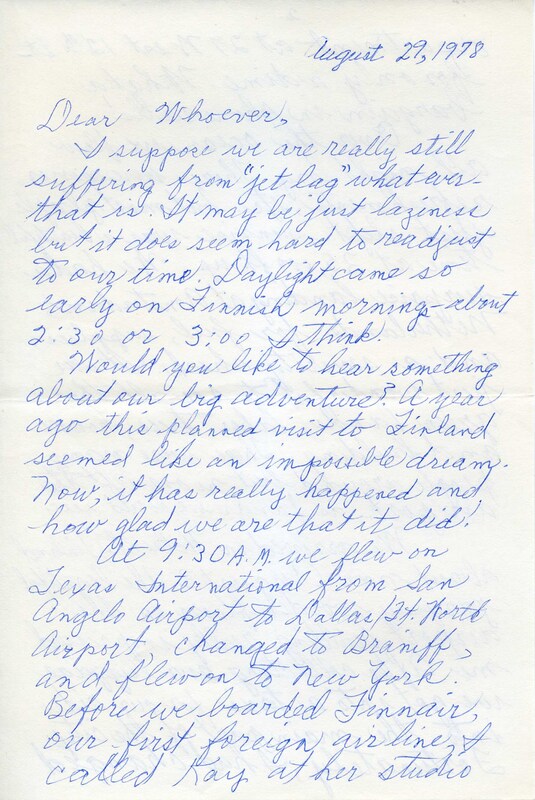 August 29, 1978
Dear Whoever,
I suppose we are really still
suffering from "jet lag" whatever-
that is. It may be just laziness
but it does seem hard to readjust
to our time. Daylight came so
early on Finnish mornings-about
2:30 or 3:00 I think.
Would you like to hear something
about our big adventure? A year
ago this planned visit to Finland
seemed like an impossible dream.
Now, it has really happened and
how glad we are that it did!
At 9:30 A.M. we flew on
Texas International from San
Angelo Airport to Dallas/Ft. Worth
Airport, changed to Braniff,
and flew on to New York.
Before we boarded Finnair,
our first foreign airline, I
called Kay at her studio